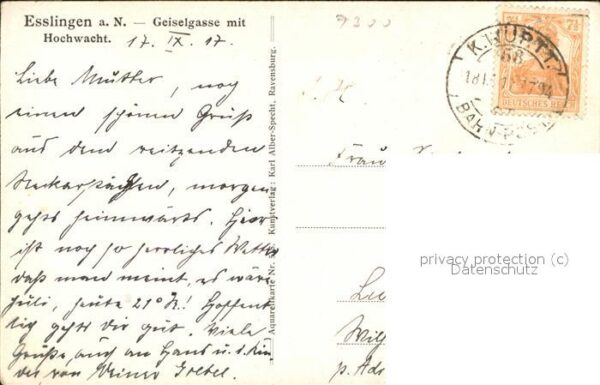 Esslingen a. N. — Geiselgasse mit
Hochwacht. 17. IX. 17.
Liebe Mutter, noch
einen schönen Gruß
aus dem reitzenden
morgen
gehts heimwärts. Hier
ist noch so herrliches Wetter
daß man meint, es wäre
Juli, heute 21° R! Hoffent
lig gehts dir gut. Viele
Grüße, auch an Hans u. d. Kin
der von Deiner
Aquarellkarte Nr. Kunstverlag: Karl Alber-Specht, Ravensburg.
7300
K. WÜRTT.
BAHNPOST
7½ 7½
DEUTSCHES REICH
Frau
privacy protection (c)
Datenschutz
Wil
p. Adr